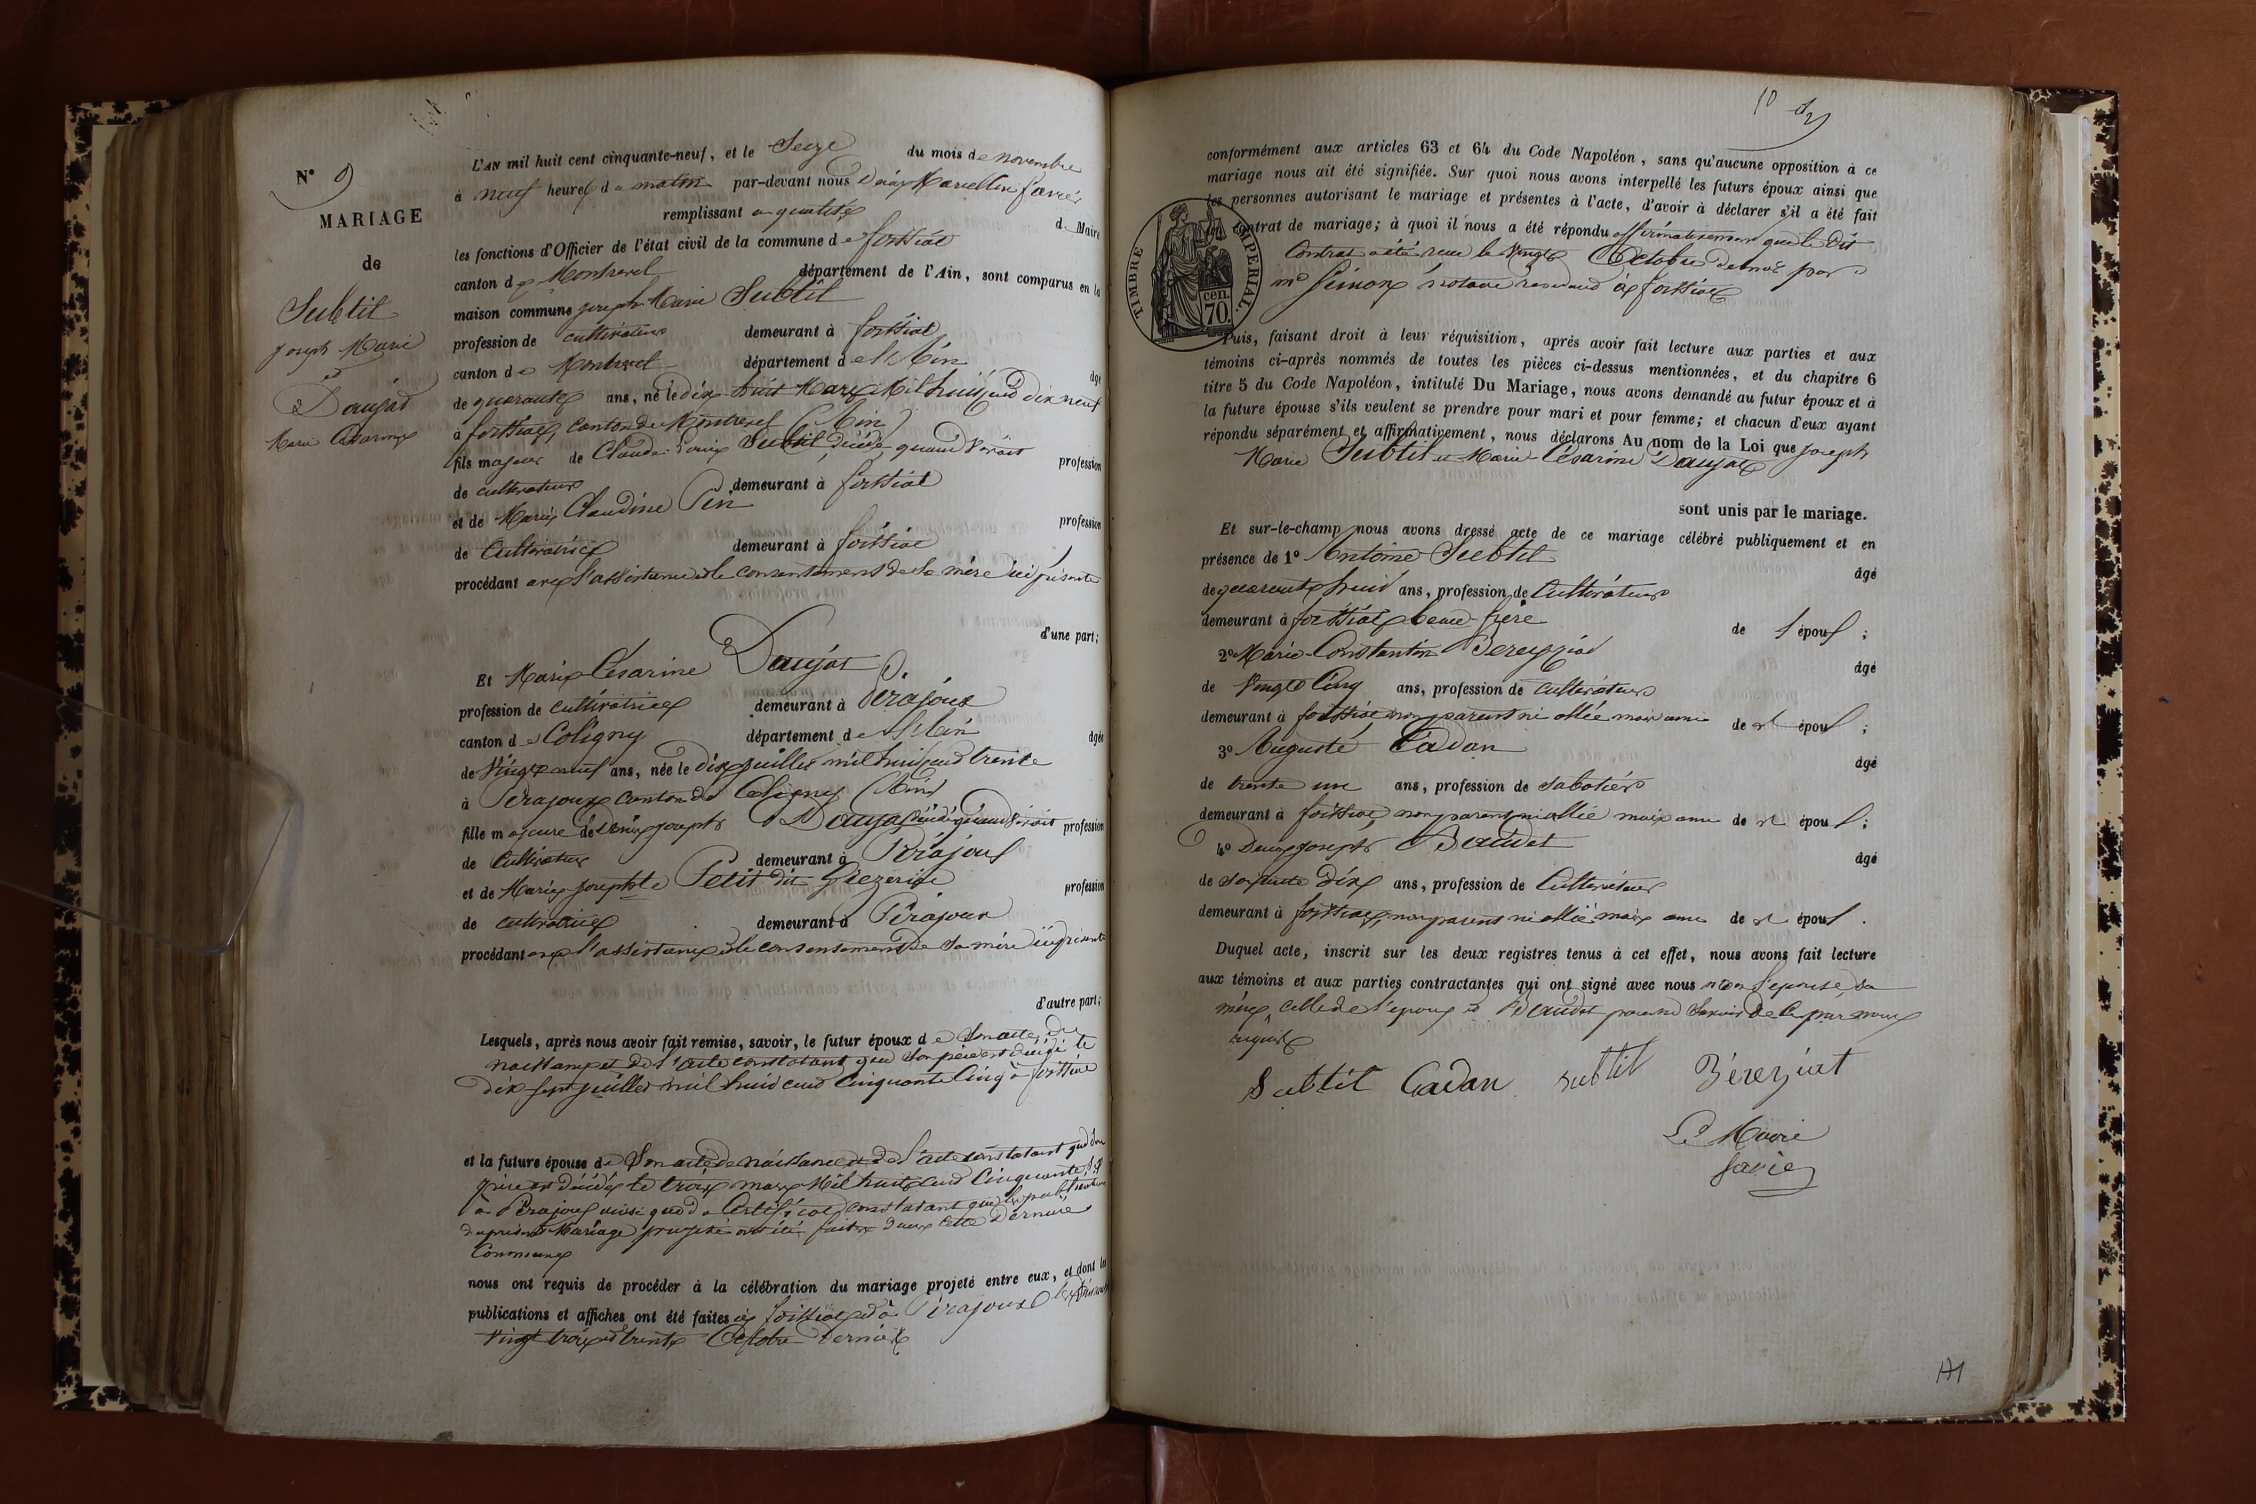 N° 9
MARIAGE
de
Subtil
Joseph Marie
et
Daujat
Marie Césarine
L'AN mil huit cent cinquante-neuf, et le Seize du mois de novembre
à neuf heures du matin par-devant nous Denis Marcellin favier
remplissant en qualité de Maire
les fonctions d'Officier de l'état civil de la commune de foissiat
canton de Montrevel département de l'Ain, sont comparus en la
maison commune joseph Marie Subtil
profession de cultivateur demeurant à foissiat
canton de Montrevel département de l'Ain âgé
de quarante ans, né le dix huit Mars Mil huit cent dix neuf
à foissiat, canton de Montrevel (Ain)
fils majeur de Claude Louis Subtil, décédé, quand vivait profession
de cultivateur demeurant à foissiat
et de Marie Claudine Pin profession
de Cultivatrice demeurant à foissiat
procédant avec l'assistance et le consentement de sa mère ici présente
d'une part;
Et Marie Césarine Daujat
profession de cultivatrice demeurant à Pirajoux
canton de Coligny département de l'Ain âgée
de Vingt neuf ans, née le dix juillet mil huit cent trente
à Pirajoux canton de Coligny (Ain)
fille majeure de Denis joseph Daujat, décédé, quand vivait profession
de Cultivateur demeurant à Pirajoux
et de Marie josephte Petit dit Grezeriat profession
de cultivatrice demeurant à Pirajoux
procédant avec l'assistance et le consentement de sa mère ici présente
d'autre part;
Lesquels, après nous avoir fait remise, savoir, le futur époux de Son acte de
naissance et de l'acte constatant que Son père est décédé le
dix sept juillet mil huit cent cinquante cinq à foissiat
et la future épouse de Son acte de naissance et de l'acte constatant que Son
père est décédé le trois mars Mil huit cent cinquante
à Pirajoux ainsi que du Certificat constatant que les publications
du présent Mariage projeté ont été faites dans cette dernière
Commune
nous ont requis de procéder à la célébration du mariage projeté entre eux, et dont les
publications et affiches ont été faites à foissiat et à Pirajoux les dimanches
Vingt trois et trente Octobre dernier
10
conformément aux articles 63 et 64 du Code Napoléon, sans qu'aucune opposition à ce
mariage nous ait été signifiée. Sur quoi nous avons interpellé les futurs époux ainsi que
les personnes autorisant le mariage et présentes à l'acte, d'avoir à déclarer s'il a été fait
un contrat de mariage; à quoi il nous a été répondu affirmativement que le dit
Contrat a été reçu le Vingt Octobre dernier par
me Simon notaire résidant à foissiat
TIMBRE IMPÉRIAL.
70 cen.
Puis, faisant droit à leur réquisition, après avoir fait lecture aux parties et aux
témoins ci-après nommés de toutes les pièces ci-dessus mentionnées, et du chapitre 6
titre 5 du Code Napoléon, intitulé Du Mariage, nous avons demandé au futur époux et à
la future épouse s'ils veulent se prendre pour mari et pour femme; et chacun d'eux ayant
répondu séparément et affirmativement, nous déclarons Au nom de la Loi que joseph
Marie Subtil et Marie Césarine Daujat
sont unis par le mariage.
Et sur-le-champ nous avons dressé acte de ce mariage célébré publiquement et en
présence de 1° Antoine Subtil âgé
de quarante huit ans, profession de Cultivateur
demeurant à foissiat beau-frère de l'époux;
2° Marie Constantin Bereyziat âgé
de Vingt Cinq ans, profession de cultivateur
demeurant à foissiat non parent ni allié mais ami de l'époux;
3° Auguste Cadan âgé
de trente un ans, profession de sabotier
demeurant à foissiat, non parent ni allié mais ami de l'époux;
4° Denis joseph Beaudet âgé
de soixante dix ans, profession de Cultivateur
demeurant à foissiat, non parent ni allié mais ami de l'époux.
Duquel acte, inscrit sur les deux registres tenus à cet effet, nous avons fait lecture
aux témoins et aux parties contractantes qui ont signé avec nous non l'épouse, sa
mère, celle de l'époux et Beaudet pour ne savoir de ce par nous
requis
Subtil Cadan subtil Béreziat
Le Maire
favier
171